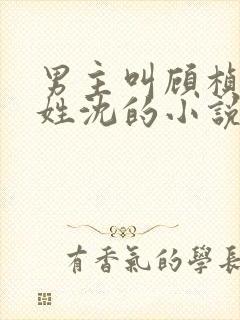 男主叫顾桢
姓沈的小説
有香氣的學長